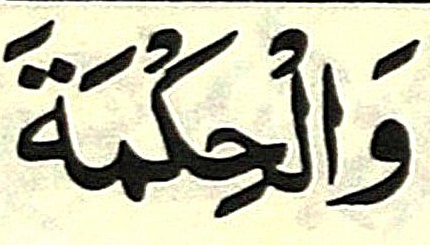 وَالْحِكْمَةَ